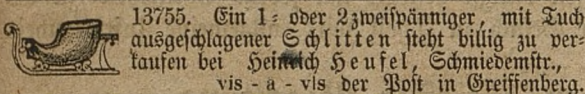 13755. Ein 1= oder 2zweiſpänniger, mit Tuch
ausgeſchlagener Schlitten ſteht billig zu ver=
kaufen bei Heinrich Heufel, Schmiedemſtr.,
vis - a - vis der Poſt in Greiffenberg.